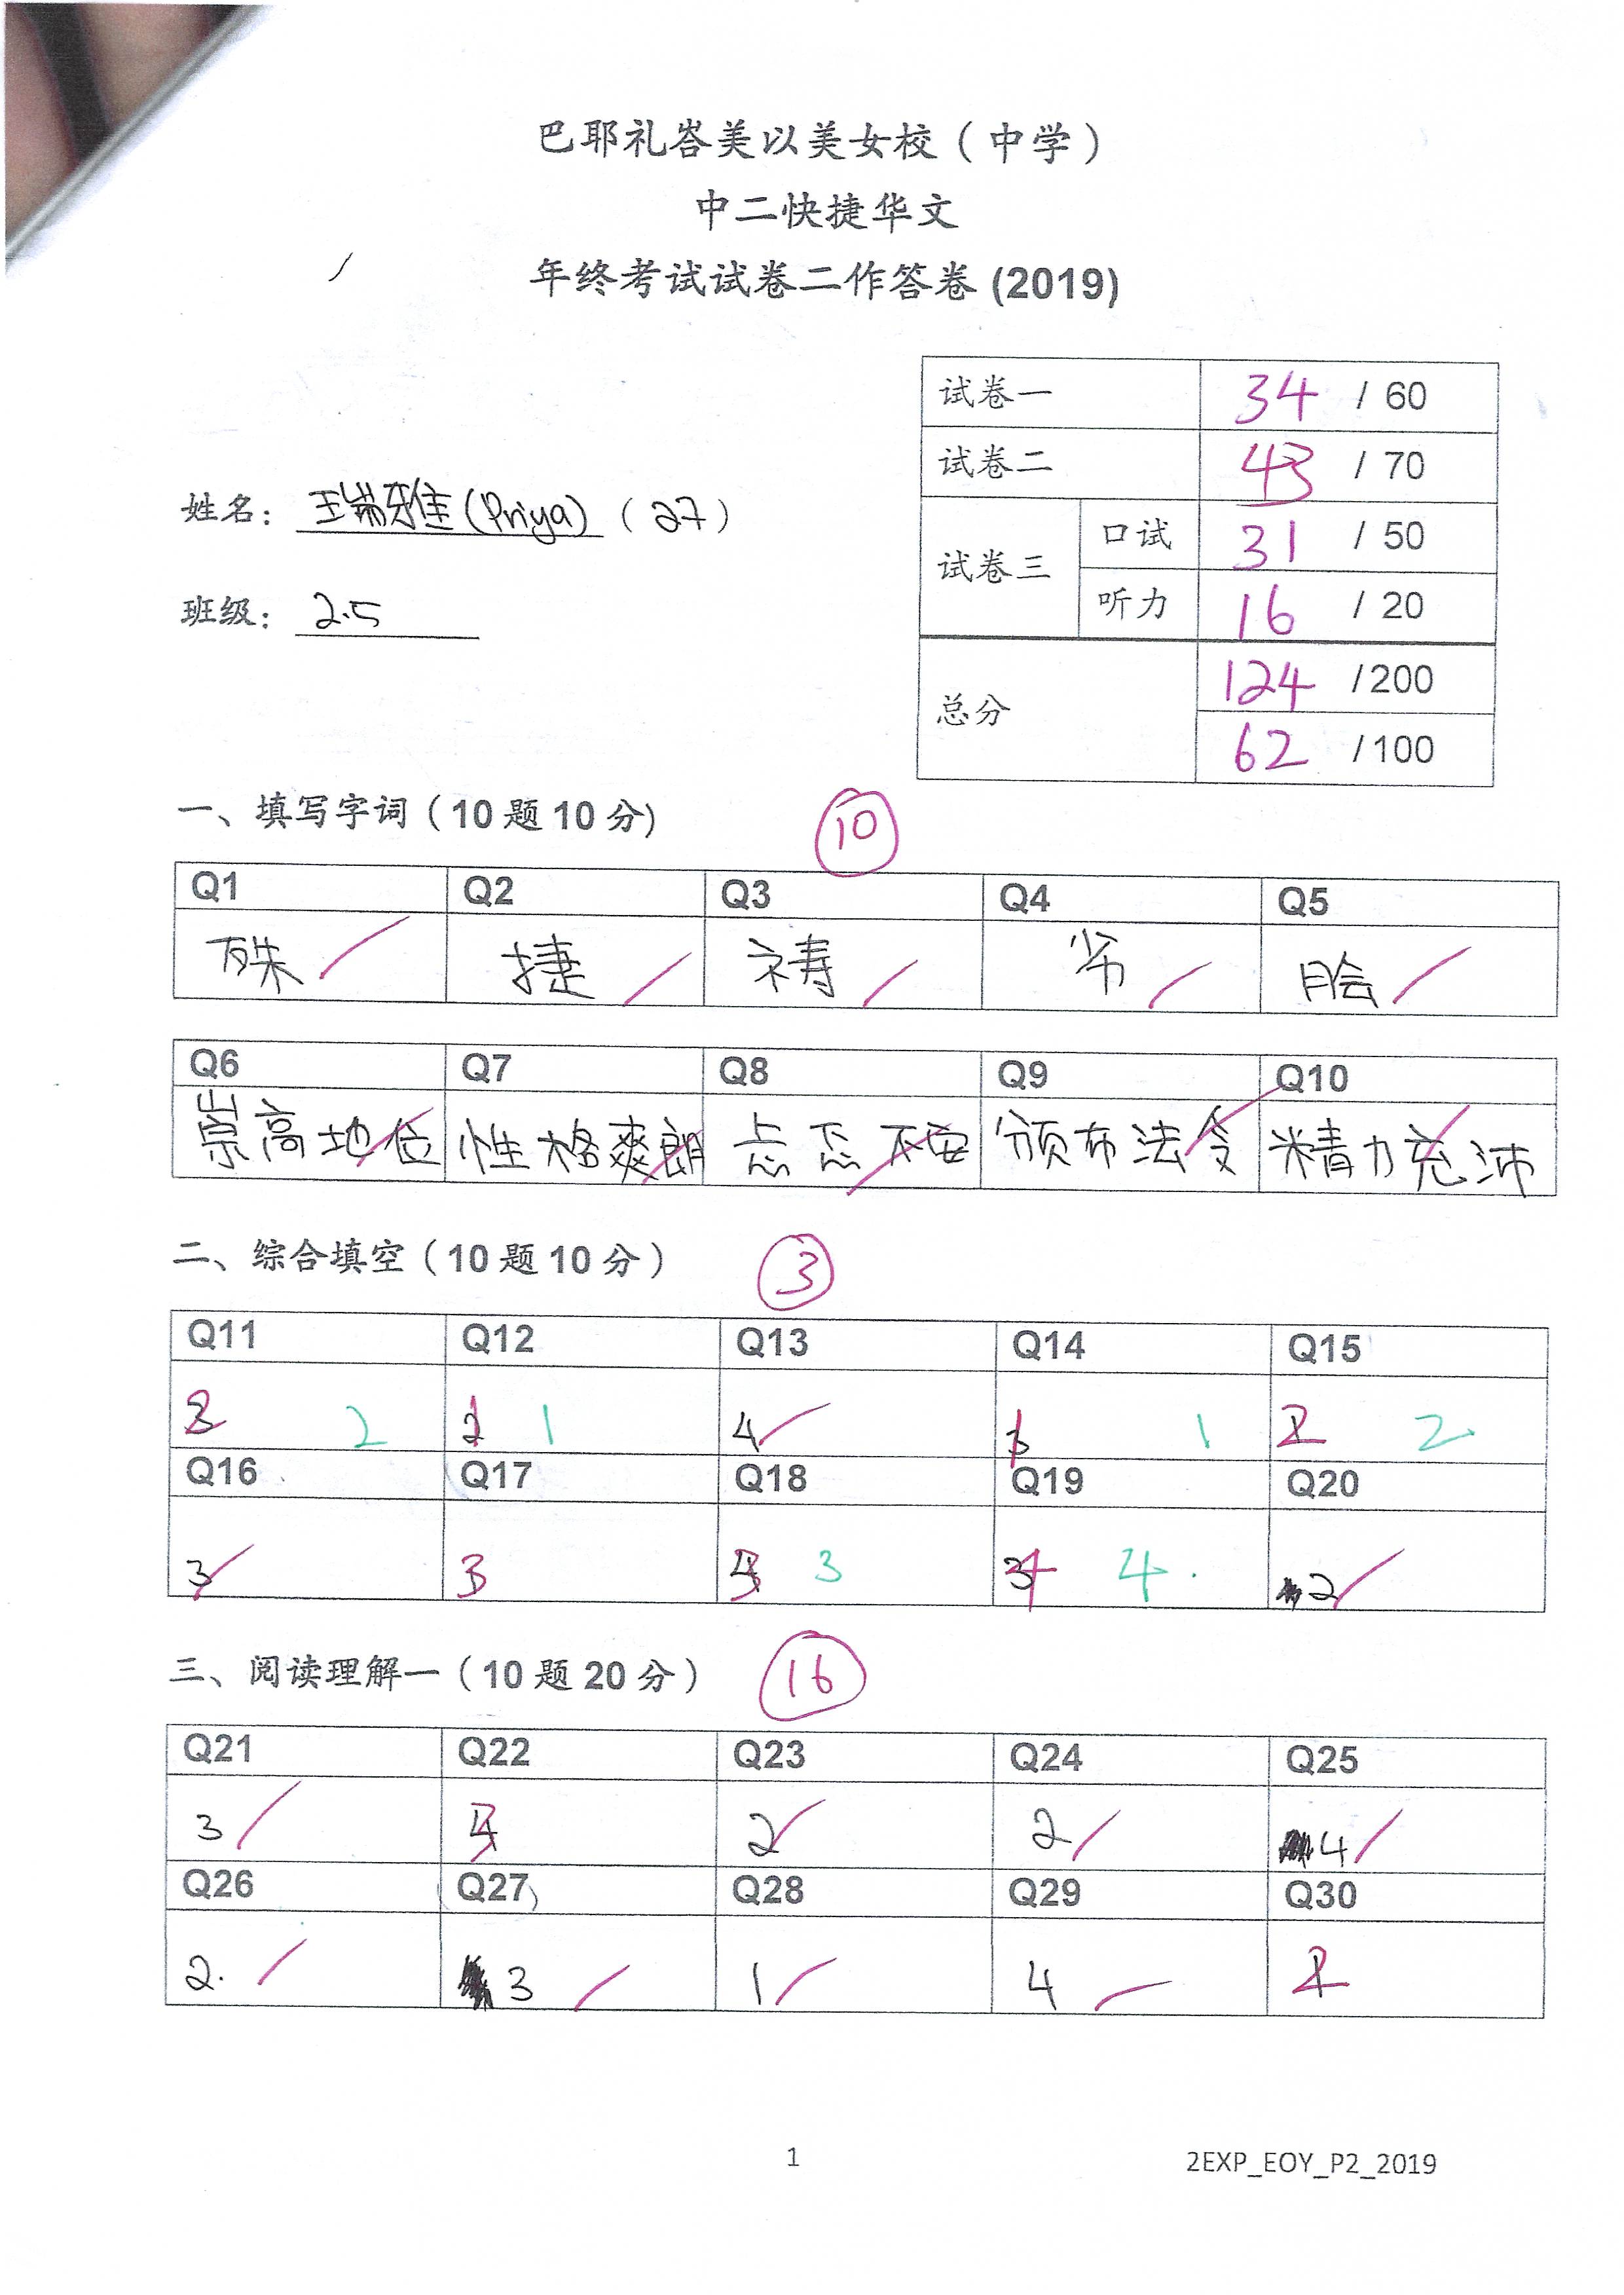 巴耶礼峇美以美女校（中学）
中二快捷华文
年终考试试卷二作答卷 (2019)
试卷一 34 / 60
试卷二 43 / 70
姓名： 王瑞雅 (Priya) （ 27 ）
试卷三 口试 31 / 50
听力 16 / 20
班级： 2.5
总分 124 /200
62 /100
一、填写字词（10 题 10 分) 10
Q1 Q2 Q3 Q4 Q5
殊 捷 祷 爷 脍
Q6 Q7 Q8 Q9 Q10
崇高地位 性格爽朗 忐忑不安 颁布法令 精力充沛
二、综合填空（10 题 10 分） 3
Q11 Q12 Q13 Q14 Q15
2 1 4 1 2
Q16 Q17 Q18 Q19 Q20
3 3 3 4 2
三、阅读理解一（10 题 20 分） 16
Q21 Q22 Q23 Q24 Q25
3 2 2 4
Q26 Q27 Q28 Q29 Q30
2. 3 1 4
1
2EXP_EOY_P2_2019